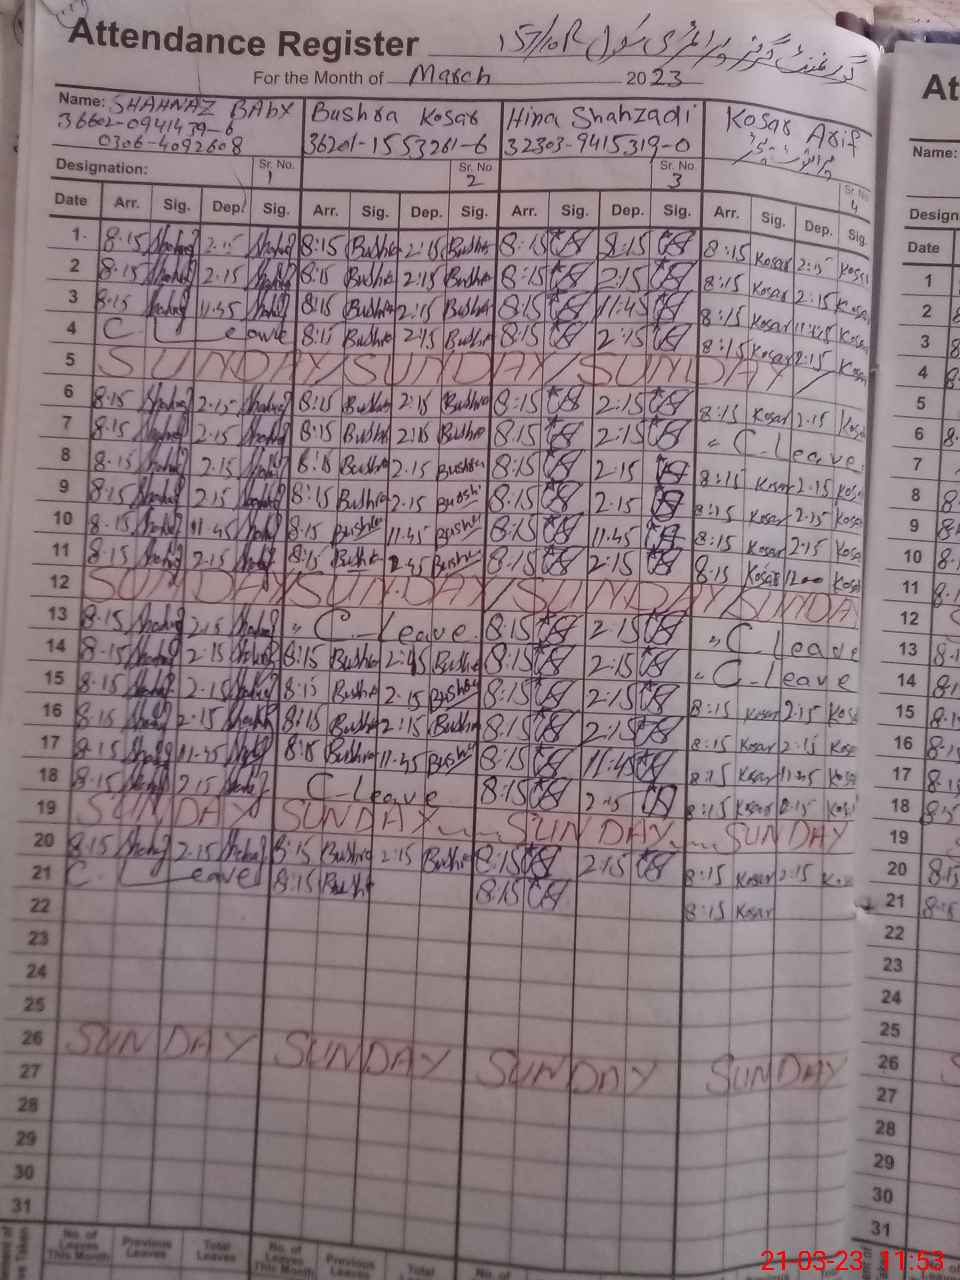 Attendance Register گورنمنٹ گرلز پرائمری سکول 157/10R
For the Month of March 2023
Name: SHAHNAZ BABY Bushra Kosar Hina Shahzadi Kosar Arif
36602-0941439-6 36201-1553261-6 32303-9415319-0
0306-4092608
Designation: Sr. No. 1 Sr. No. 2 Sr. No. 3 Sr. No. 4
Date Arr. Sig. Dep. Sig. Arr. Sig. Dep. Sig. Arr. Sig. Dep. Sig. Arr. Sig. Dep. Sig.
1. 8:15 2:15 8:15 Bushra 2:15 Bushra 8:15 8:15 8:15 Kosar 2:15 Kosar
2 8:15 2:15 8:15 Bushra 2:15 Bushra 8:15 2:15 8:15 Kosar 2:15 Kosar
3 8:15 11:45 8:15 Bushra 2:15 Bushra 8:15 11:45 8:15 Kosar Kosar
4 C. Leave 8:15 Bushra 2:15 Bushra 8:15 2:15 8:15 Kosar 2:15 Kosar
5 SUNDAY / SUNDAY / SUNDAY /
6 8:15 2:15 8:15 Bushra 2:15 Bushra 8:15 2:15 8:15 Kosar 2:15 Kosar
7 8:15 2:15 8:15 Bushra 2:15 Bushra 8:15 2:15 " C. Leave
8 8:15 2:15 8:15 Bushra 2:15 Bushra 8:15 2:15 8:15 Kosar 2:15 Kosar
9 8:15 2:15 8:15 Bushra 2:15 Bushra 8:15 2:15 8:15 Kosar 2:15 Kosar
10 8:15 11:45 8:15 Bushra 11:45 Bushra 8:15 11:45 8:15 Kosar 2:15 Kosar
11 8:15 2:15 8:15 Bushra 2:45 Bushra 8:15 2:15 8:15 Kosar 1200 Kosar
12 SUNDAY SUNDAY / SUNDAY / SUNDAY
13 8:15 2:15 " C. Leave 8:15 2:15 " C Leave
14 8:15 2:15 8:15 Bushra 2:45 Bushra 8:15 2:15 " C. Leave
15 8:15 2:15 8:15 Bushra 2:15 Bushra 8:15 2:15 8:15 Kosar 2:15 Kosar
16 8:15 2:15 8:15 Bushra 2:15 Bushra 8:15 2:15 8:15 Kosar 2:15 Kosar
17 8:15 11:45 8:15 Bushra 11:45 Bushra 8:15 11:45 8:15 Kosar 11:45 Kosar
18 8:15 2:15 C. Leave 8:15 2:15 8:15 Kosar 2:15 Kosar
19 SUNDAY SUNDAY SUNDAY SUNDAY
20 8:15 2:15 8:15 Bushra 2:15 Bushra 8:15 2:15 8:15 Kosar 2:15
21 C. Leave 8:15 Bushra 8:15 8:15 Kosar
22
23
24
25
26 SUNDAY SUNDAY SUNDAY SUNDAY
27
28
29
30
31
No. of Leaves This Month Previous Leaves Total Leaves No. of Leaves This Month Previous Leaves Total No. of
At
Name:
Design
Date
1
2
3
4
5
6
7
8
9
10
11
12
13
14
15
16
17
18
19
20
21
22
23
24
25
26
27
28
29
30
31
21-03-23 11:53